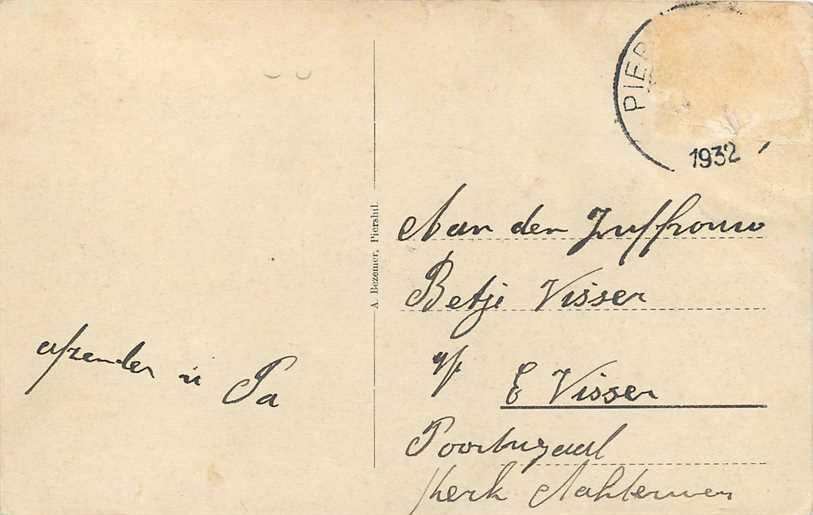 afzender is Pa
A. Bezemer, Piershil.
PIER
1932
Aan den Juffrouw
Betje Visser
p/a
E Visser
Poortugaal
Kerk Achterweg